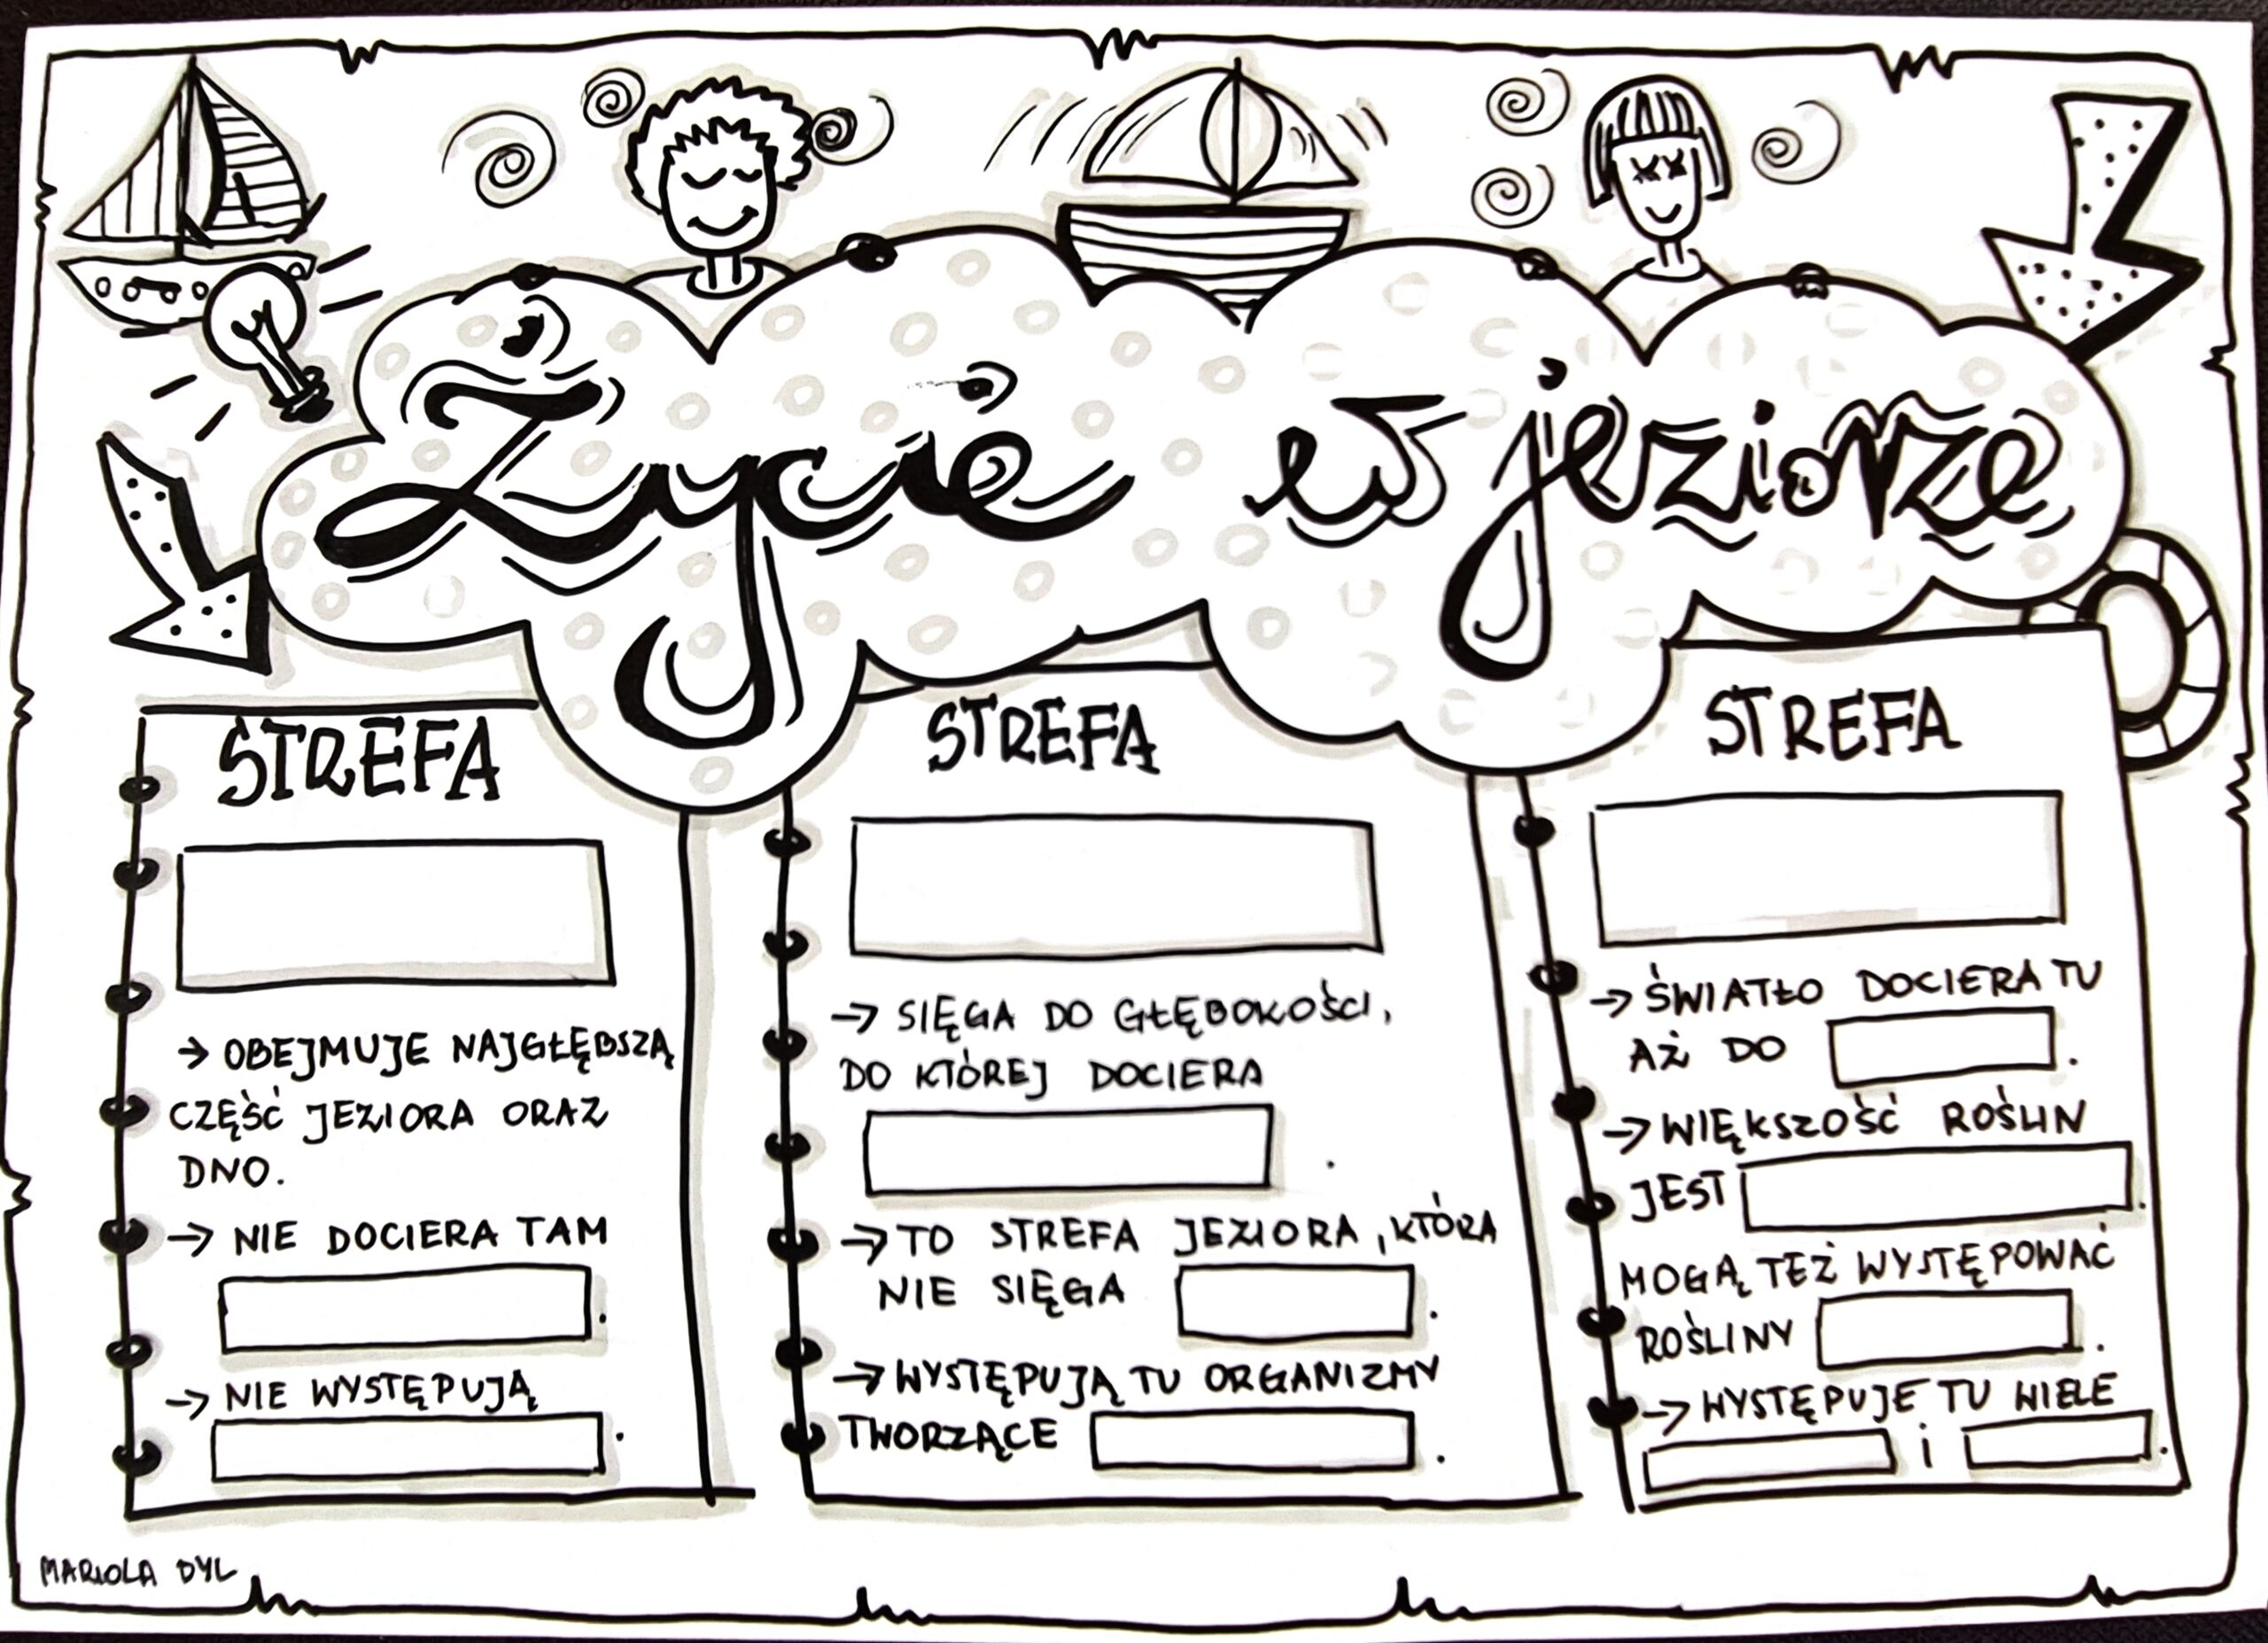 Życie w jeziorze
STREFA
→ OBEJMUJE NAJGŁĘBSZĄ
CZĘŚĆ JEZIORA ORAZ
DNO.
→ NIE DOCIERA TAM
.
→ NIE WYSTĘPUJĄ
.
STREFA
→ SIĘGA DO GŁĘBOKOŚCI,
DO KTÓREJ DOCIERA
.
→ TO STREFA JEZIORA, KTÓRA
NIE SIĘGA .
→ WYSTĘPUJĄ TU ORGANIZMY
TWORZĄCE .
STREFA
→ ŚWIATŁO DOCIERA TU
AŻ DO .
→ WIĘKSZOŚĆ ROŚLIN
JEST .
MOGĄ TEŻ WYSTĘPOWAĆ
ROŚLINY .
→ WYSTĘPUJE TU WIELE
i .
MARIOLA DYL